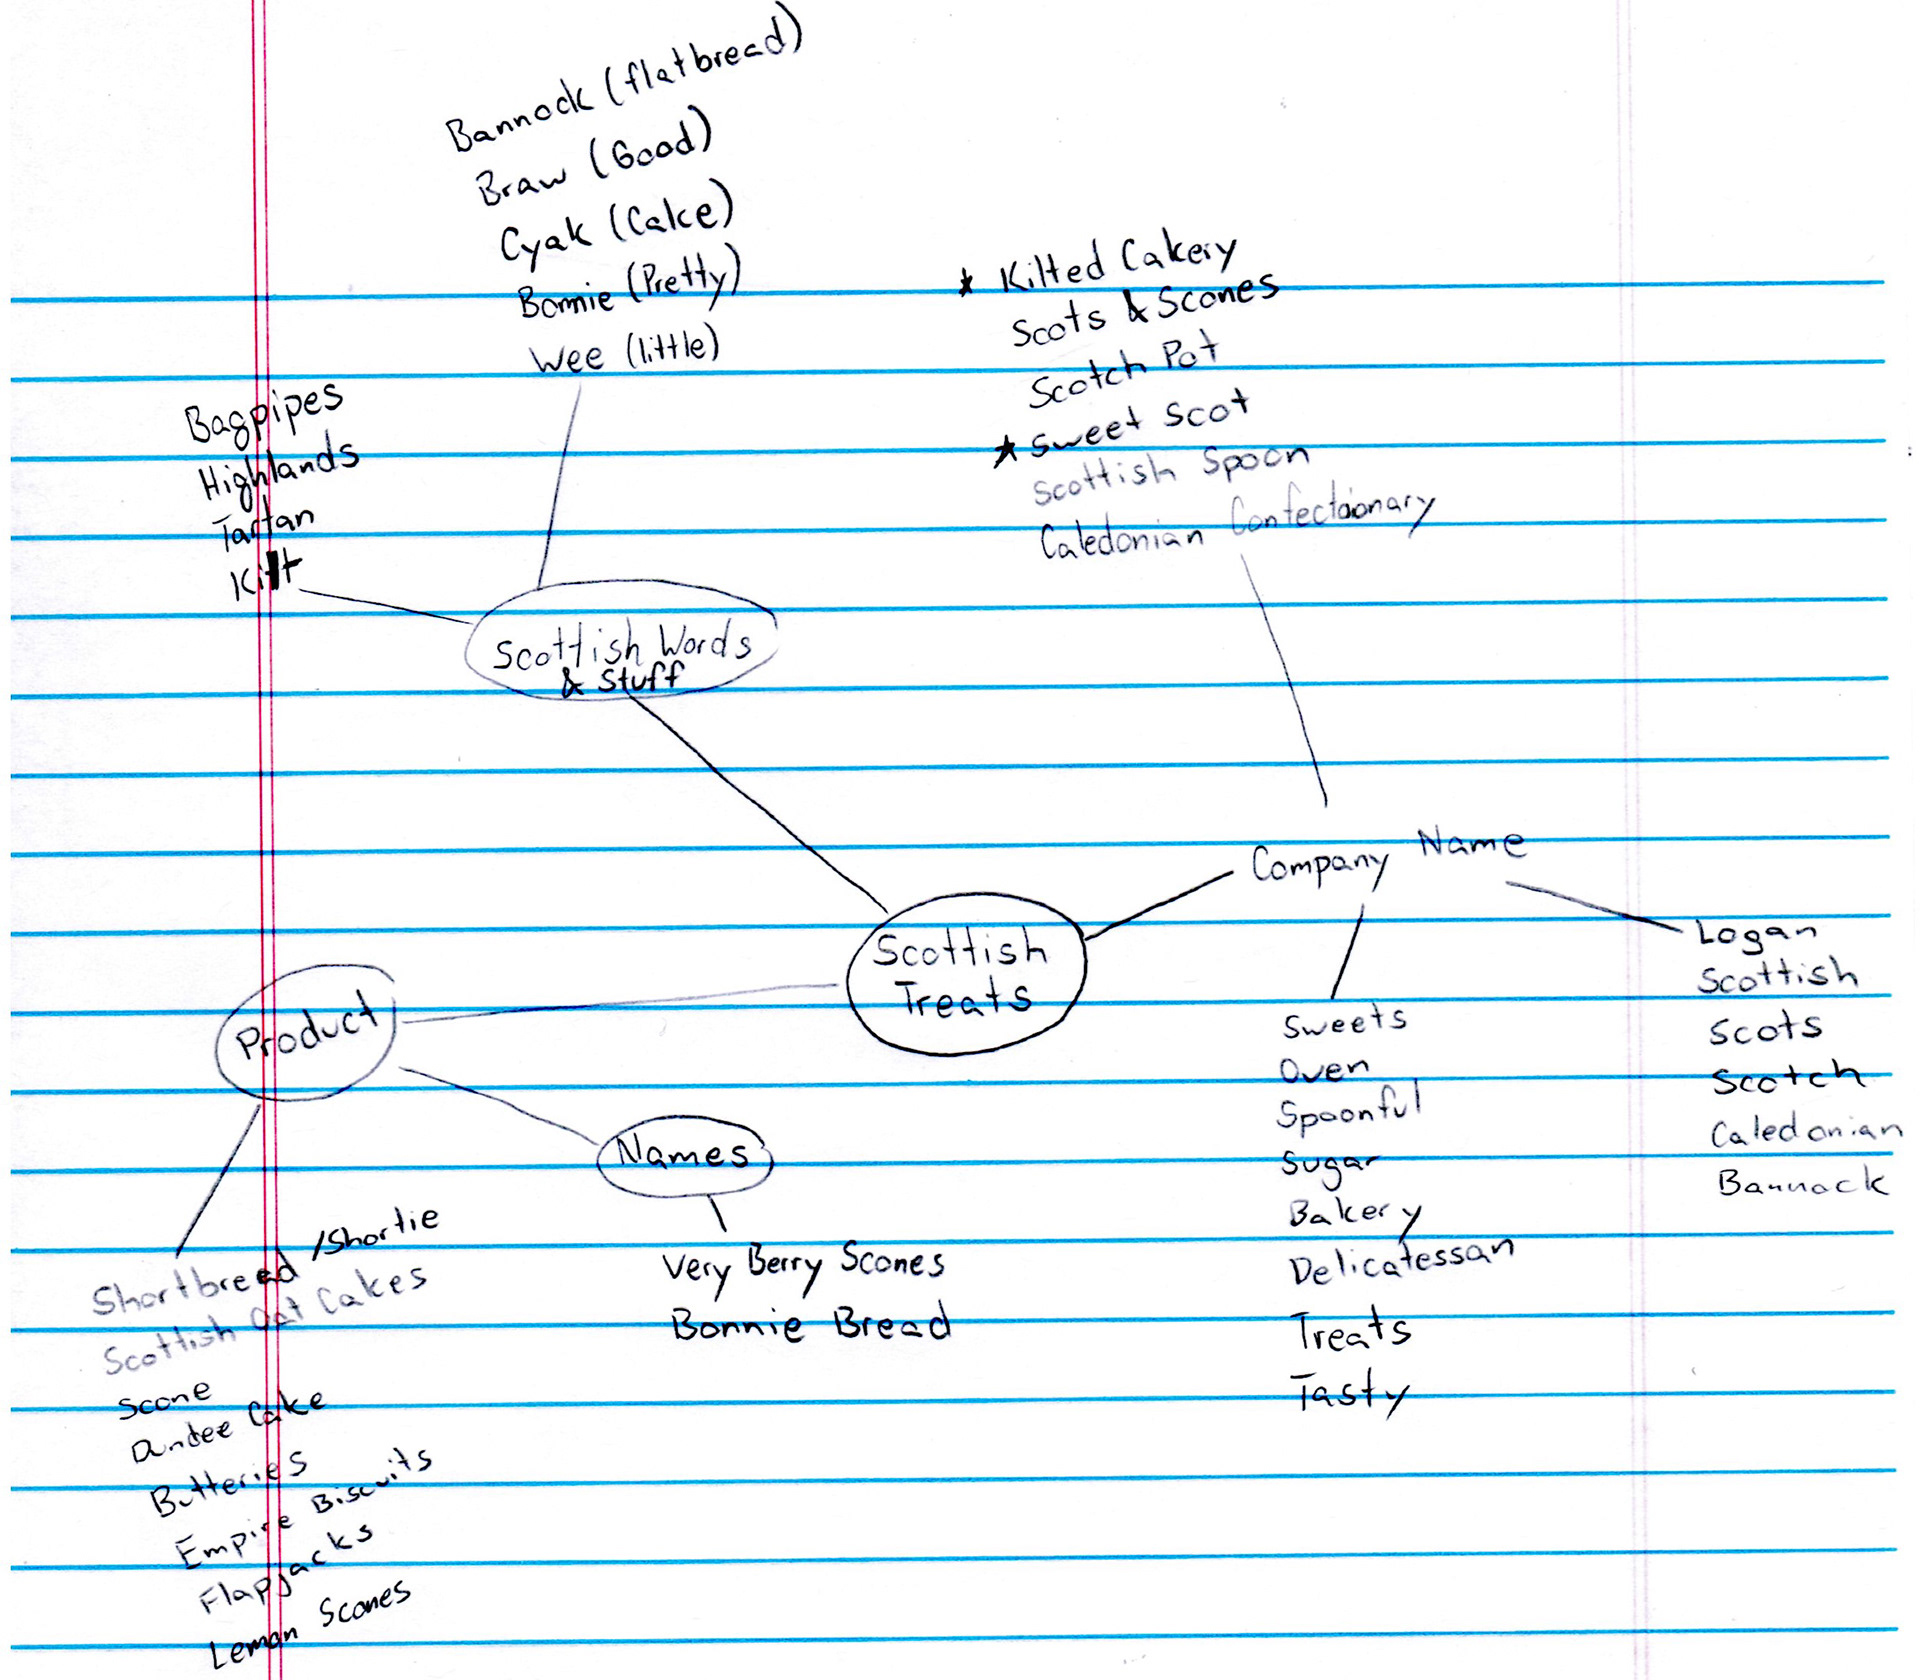 Bannock (flatbread)
Braw (Good)
Cyak (Cake)
Bonnie (Pretty)
Wee (little)
Bagpipes
Highlands
Tartan
Kilt
Scottish Words
& Stuff
★ Kilted Cakery
Scots & Scones
Scotch Pot
★ Sweet Scot
Scottish Spoon
Caledonian Confectionary
Company Name
Logan
Scottish
Scots
Scotch
Caledonian
Bannock
Sweets
Oven
Spoonful
Sugar
Bakery
Delicatessan
Treats
Tasty
Scottish
Treats
Product
Names
Very Berry Scones
Bonnie Bread
Shortbread /Shortie
Scottish Oat Cakes
Scone
Dundee Cake
Butteries
Empire Biscuits
Flapjacks
Lemon Scones